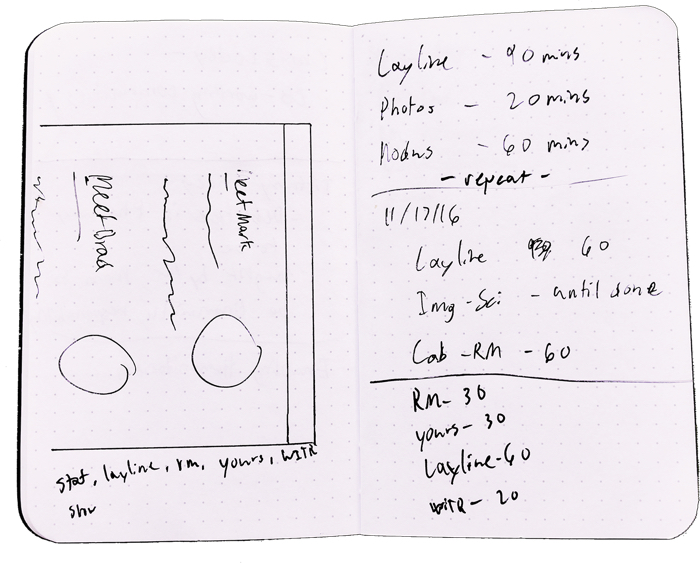 Meet Mark
Meet Brad
stat, layline, rm, yours, write
Layline - 90 mins
Photos - 20 mins
- 60 mins
- repeat -
11/17/16
Layline 60
Img-Sci - until done
Cab-RM - 60
RM- 30
yours- 30
Layline-60
write- 20